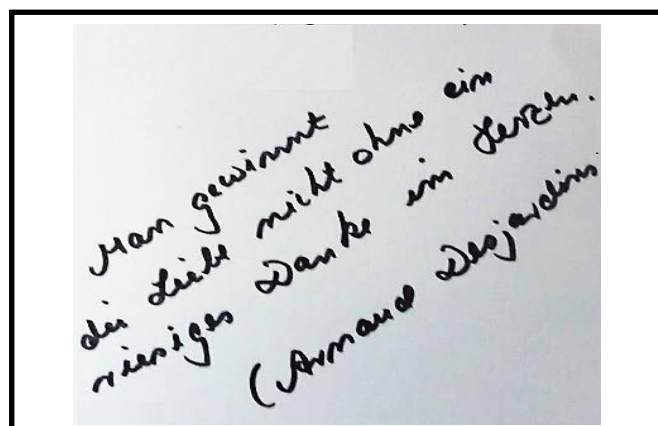 Man gewinnt
die Liebe nicht ohne ein
riesiges Danke im Herzen.
(Arnaud Desjardins